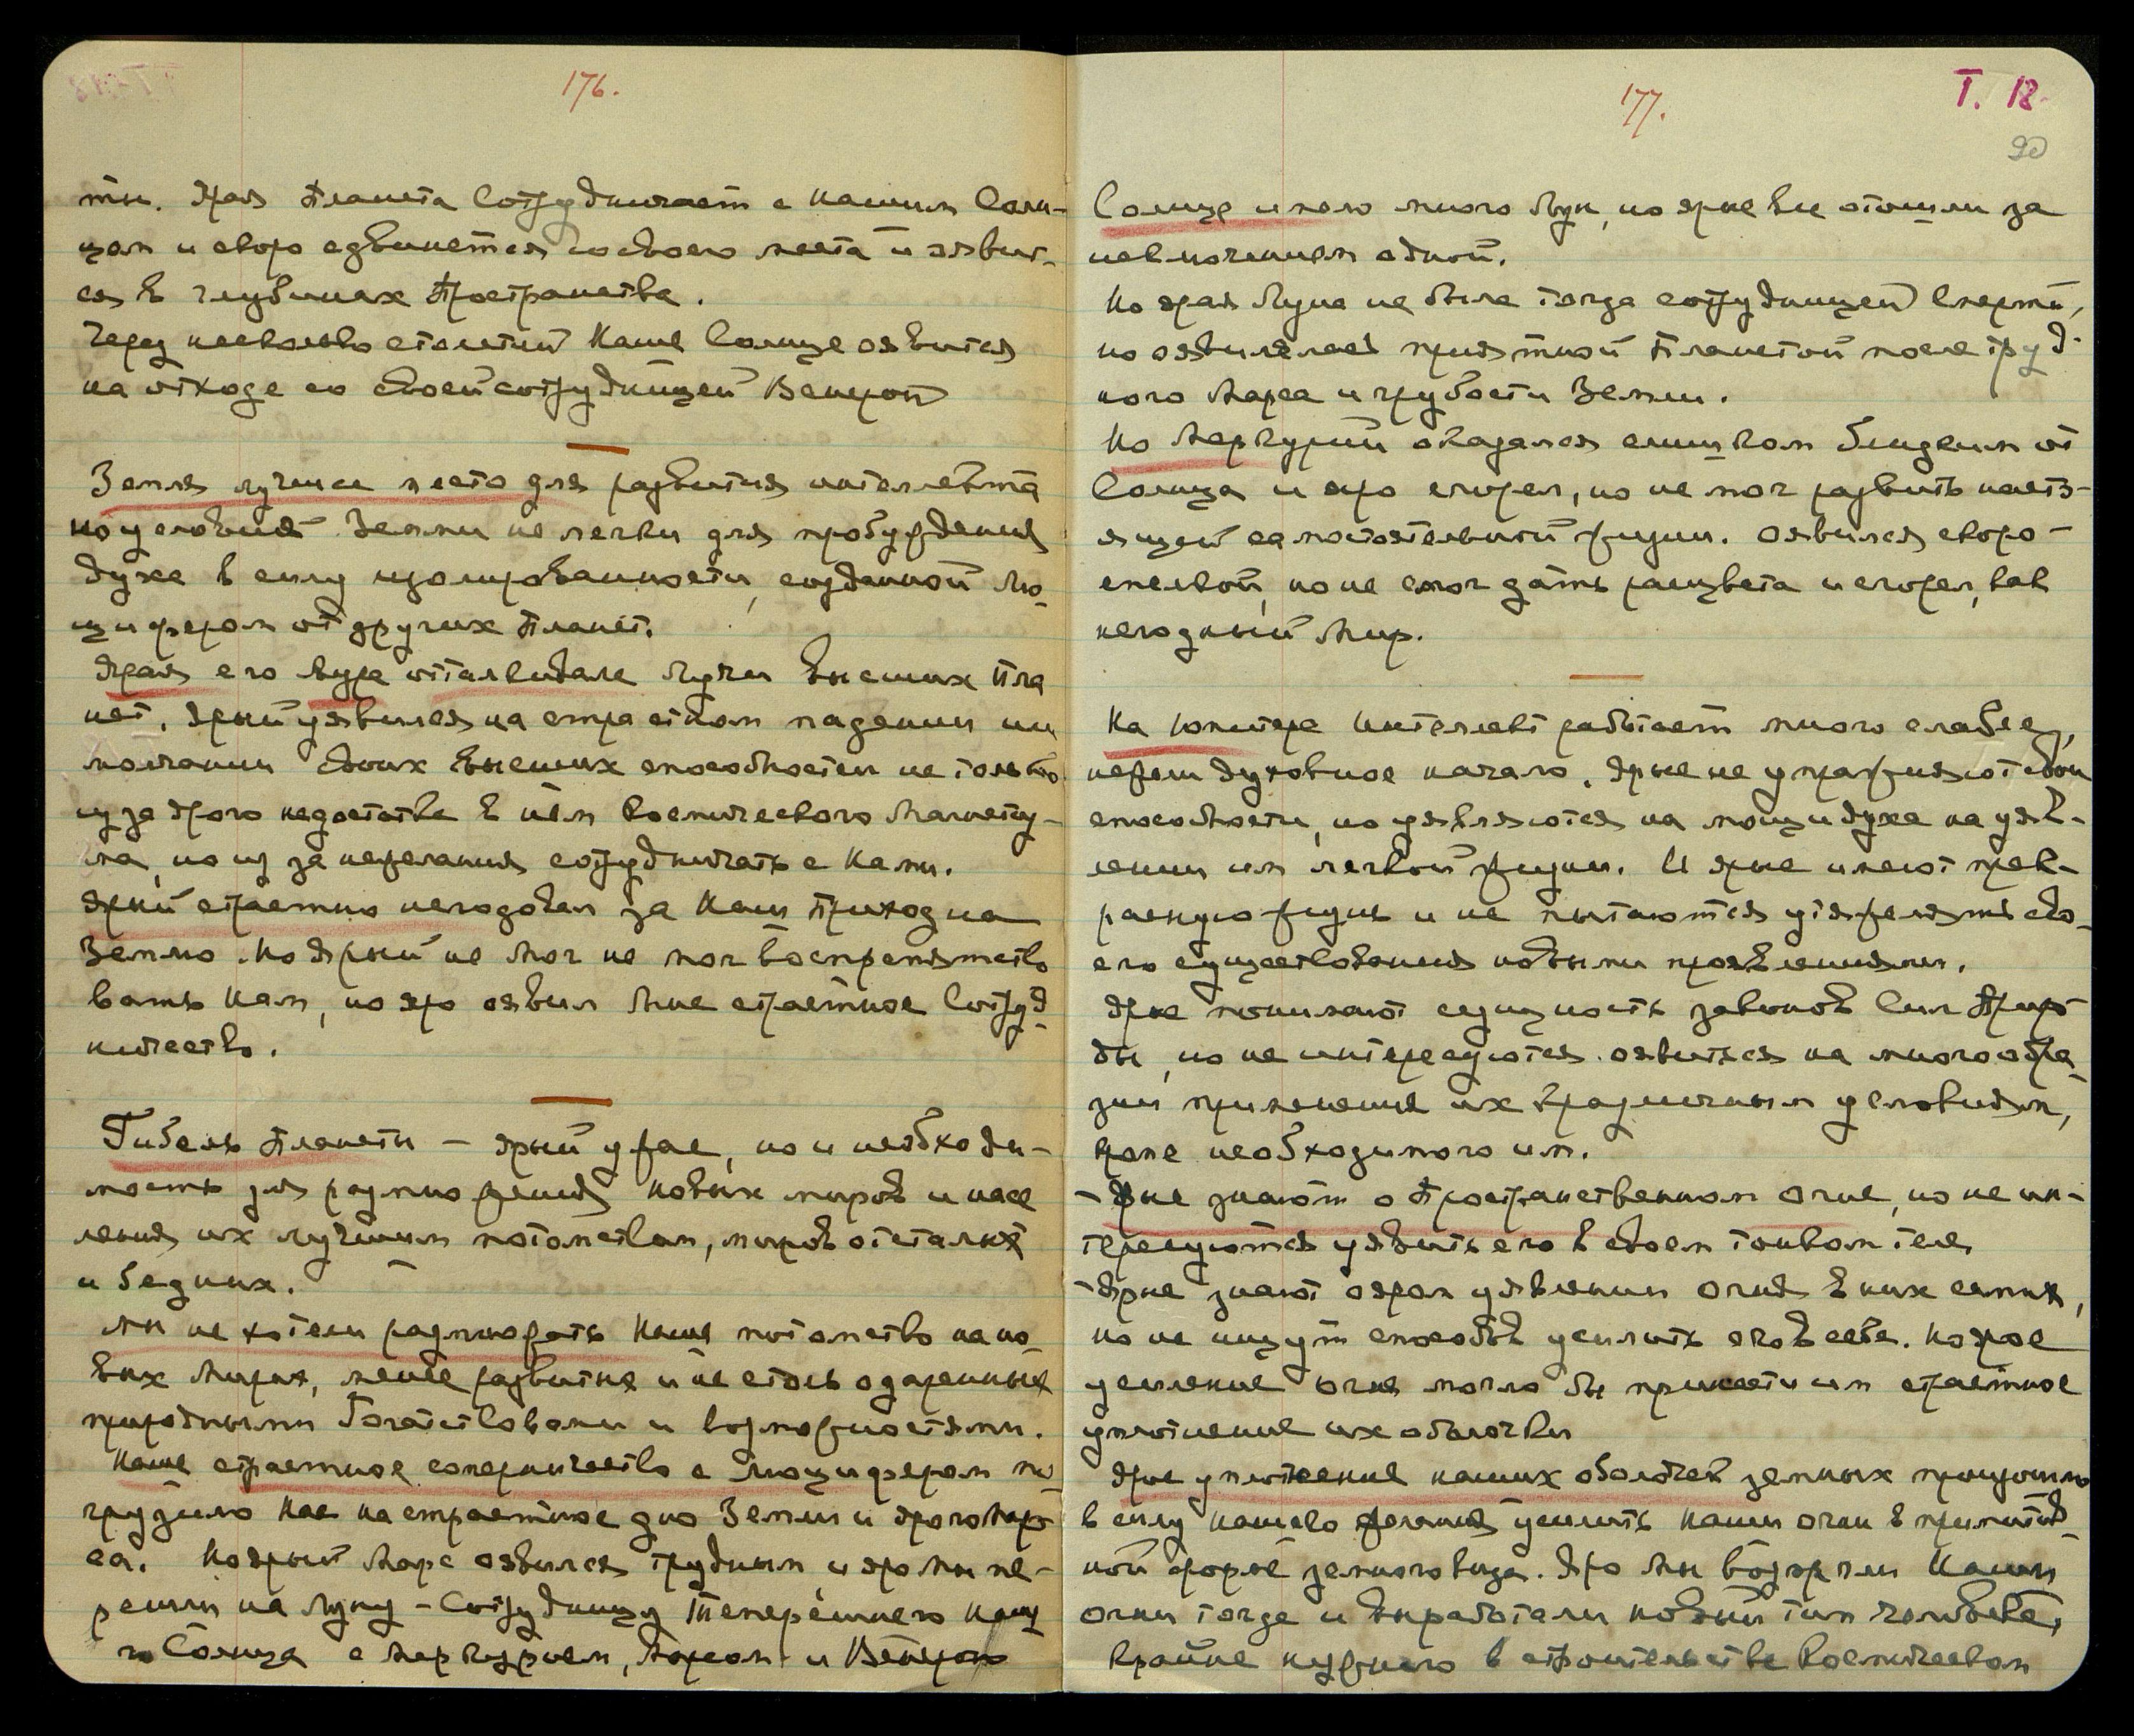 176.
ты. Ярая Планета Сотрудничает с нашим Солн-
цем и скоро сдвинется со своего места и явит-
ся в глубинах Пространства.
Через несколько столетий Наше Солнце оявится
на отходе со своей сотрудницей Венерой
Земля лучшее место для развития интеллекта
но условия Земли не легки для пробуждения
духа в силу изолированности, созданной Лю-
цифером от других Планет.
Ярая его аура отталкивала Лучи Высших Пла
нет. Ярый уявился на страстном падении или
молчании своих высших способностей не только
из за ярого недостатка в нем Космического Магнетиз-
ма, но из за нежелания сотрудничать с Нами.
Ярый страстно негодовал за Наш Приход на
Землю. Но Ярый не мог не мог воспрепятство
вать Нам, но яро оявил Мне страстное Сотруд
ничество.
Гибель Планеты — ярый ужас, но и необходи-
мость для размножения новых миров и насе
ления их лучшим потомством, миров отсталых
и бедных.
Мы не хотели размножать Наше потомство на но-
вых Мирах, менее развитых и не столь одаренных
природными Богатствами и возможностями.
Наше страстное соперничество с Люцифером по
грузило Нас на страстное дно Земли и ярого Мар
са. Но ярый Марс оявился трудным, и яро Мы пе-
решли на Луну – Сотрудницу Теперешнего Наше
го Солнца с Меркурием, Марсом и Венерой
177.
Т. 12
90
Солнце имело много Лун, но ярые все отошли за
исключением одной.
Но ярая Луна не была тогда сотрудницей Смерти,
но оявилялась приятной Планетой после труд-
ного Марса и грубости Земли.
Но Меркурий оказался слишком близким от
Солнца и яро сгорел, но не мог развить насто-
ящей самостоятельной жизни. Оявился скоро-
спелкой, но не смог дать расцвета и сгорел, как
негодный Мир.
На Юпитере Интеллект работает много слабее,
нежели духовное начало. Ярые не упражняют свои
способности, но уявляются на мощи духа на уяв-
лении им легкой жизни. И ярые имеют прек-
расную жизнь и не пытаются утяжелять сво-
его существования новыми проявлениями.
Ярые понимают сущность законов Сил Приро
ды, но не интересуются оявиться на многообра-
зии применения их к различным условиям,
кроме необходимого им.
– Ярые знают о Пространственном Огне, но не ин-
тересуются уявить его в своем тонком теле
– Ярые знают о яром уявлении Огня в них самих,
но не ищут способов усилить его в себе. Но ярое
усиление огня могло бы принести им страстное
уплотнение их оболочки
Ярое уплотнение наших оболочек земных произошло
в силу нашего желания усилить наши огни в примитив-
ной форме земного вида. Яро Мы возожгли Наши
огни тогда и выработали новый тип человека,
крайне нужного в строительстве Космическом